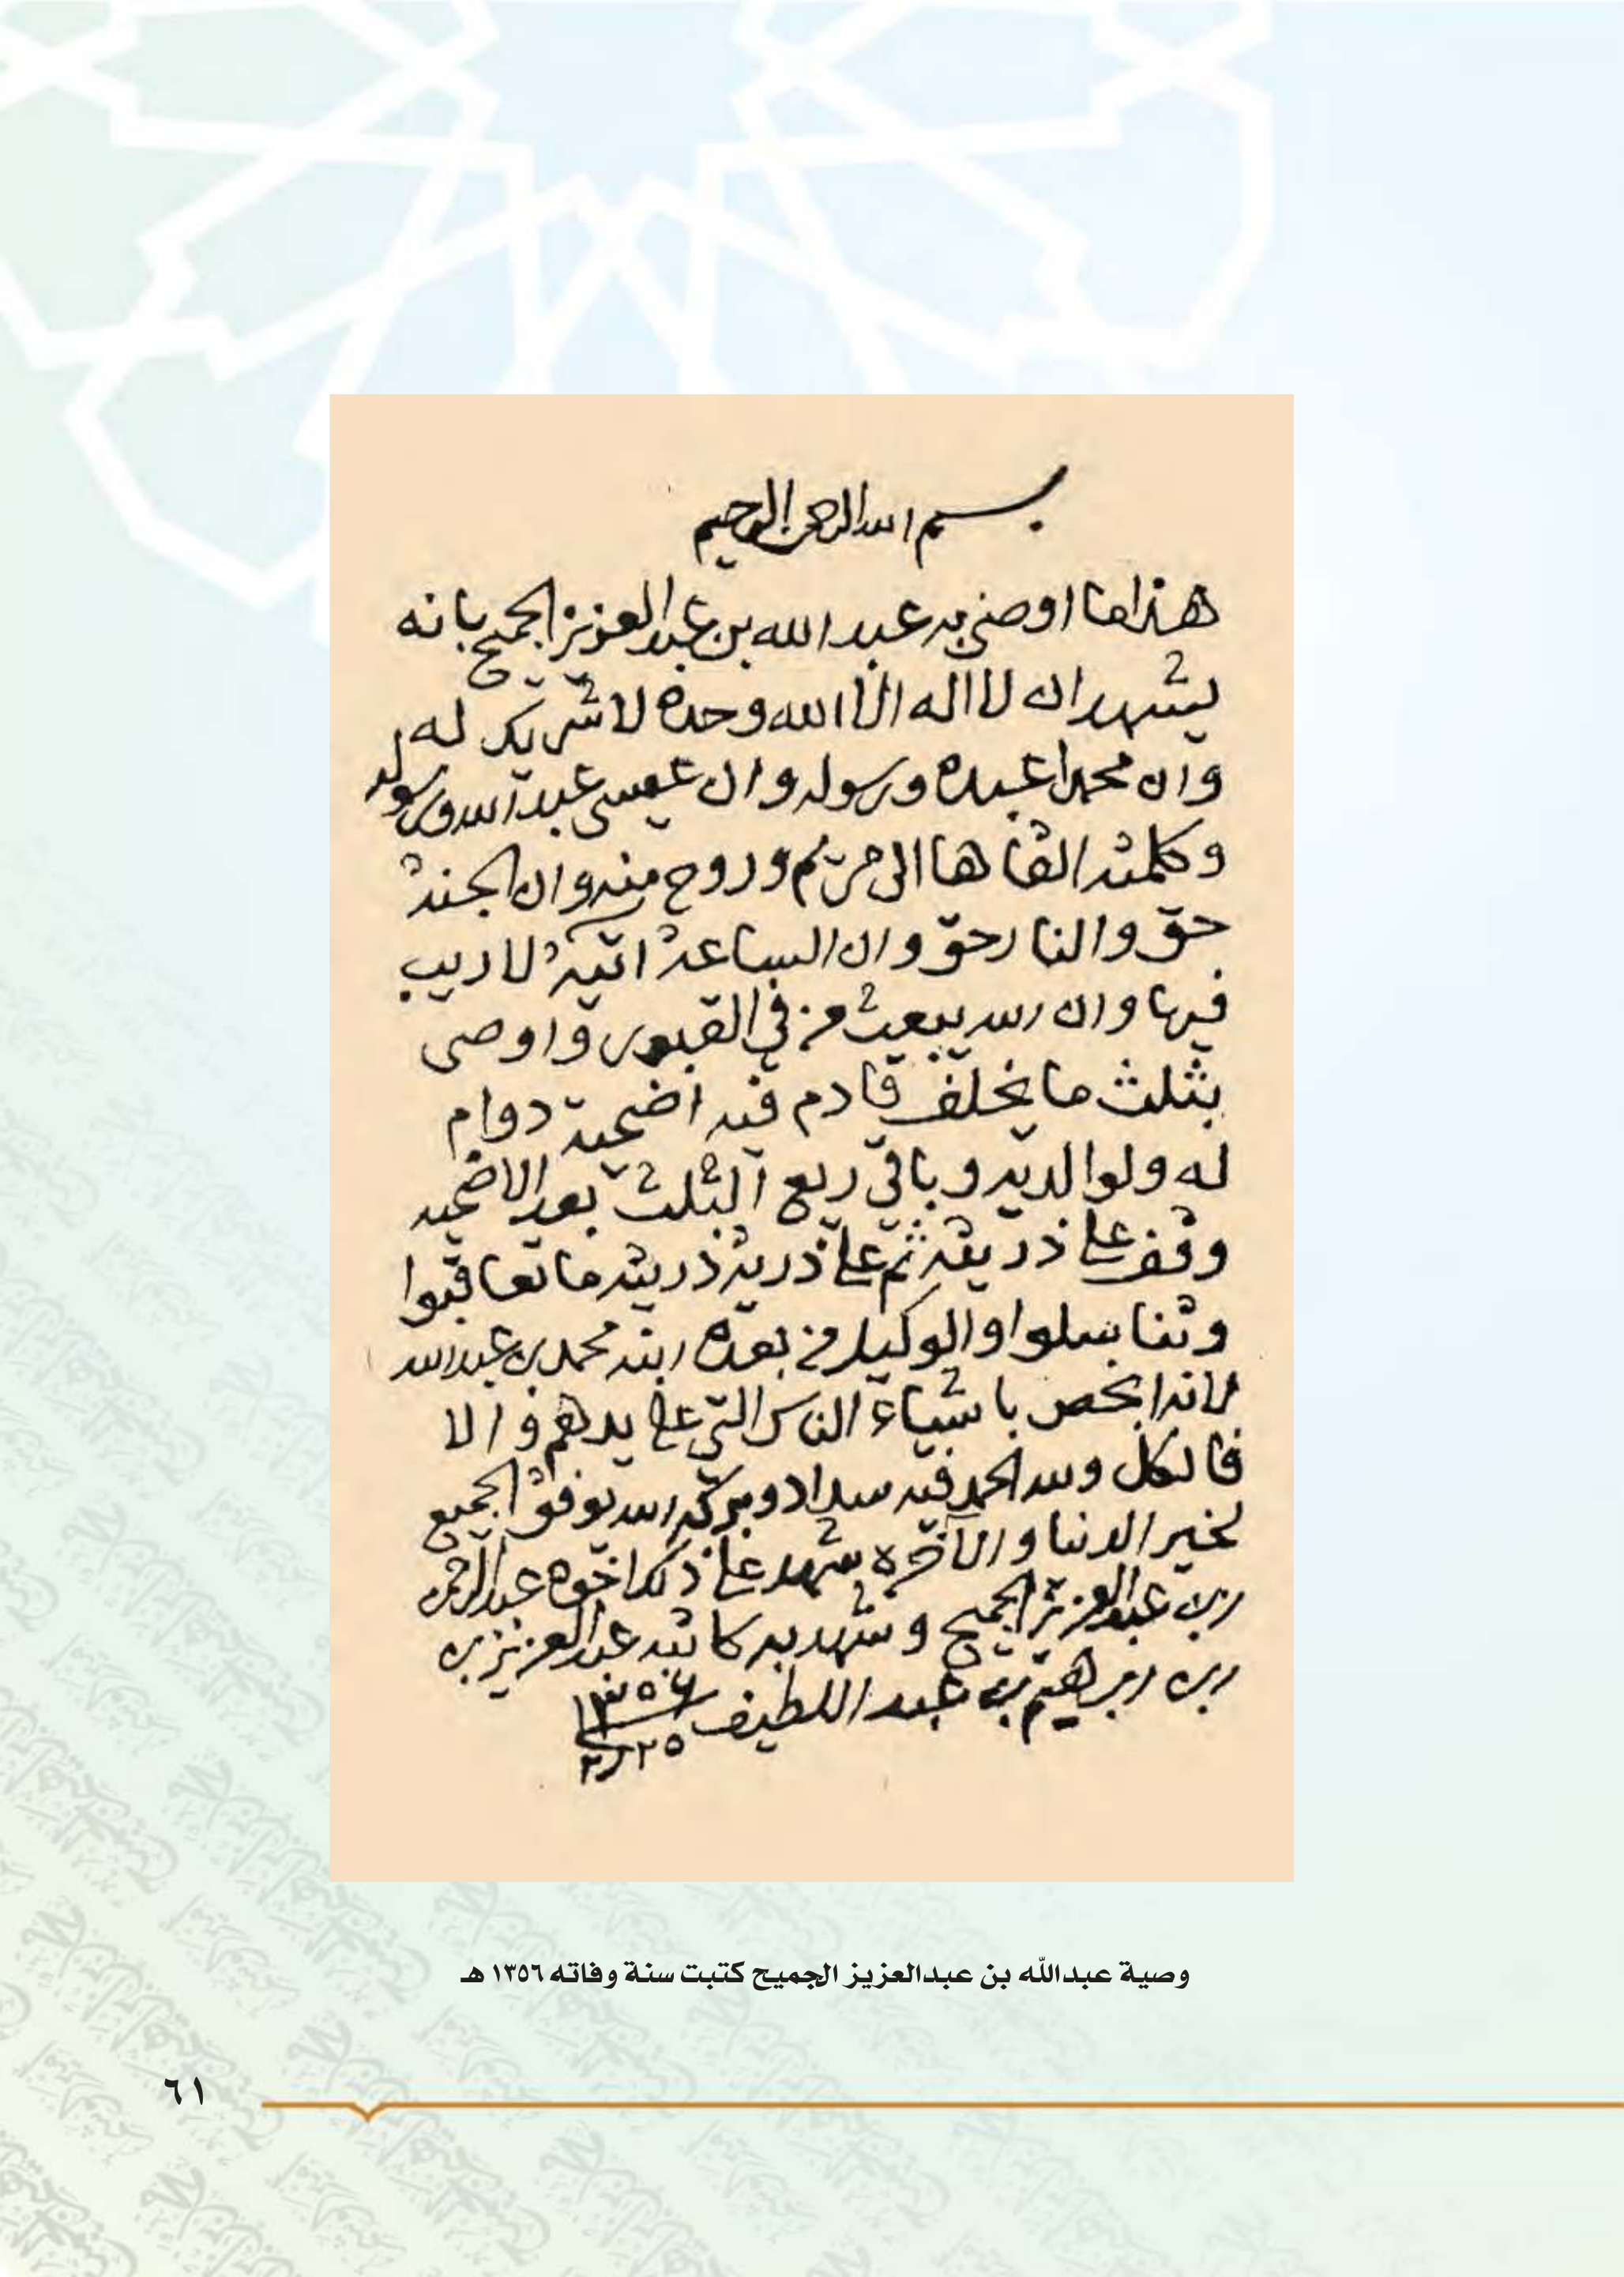 بسم الله الرحمن الرحيم
هذا ما اوصى به عبد الله بن عبد العزيز الجميح بانه
يشهد ان لا اله الا الله وحده لا شريك له
وان محمدا عبده ورسوله وان عيسى عبد الله ورسوله
وكلمته القاها الى مريم وروح منه وان الجنة
حق والنار حق وان الساعة اتية لا ريب
فيها وان الله يبعث من في القبور واوصى
بثلث ما يخلف قادم فيه اضحية دوام
له ولوالديه وباقي ريع الثلث بعد الاضحيه
وقف على ذريته ثم على ذرية ذريته ما تعاقبوا
وتناسلوا والوكيل من بعده ابنه محمد بن عبد الله
لانه ابخص باشياء الناس التي على يدهم والا
فالكل ولله الحمد فيه سداد وبركة الله يوفق الجميع
لخير الدنيا والآخره شهد على ذلك اخوه عبد الرحمن
بن عبد العزيز الجميح وشهد به كاتبه عبد العزيز بن
بن ابرهيم بن عبد اللطيف ١٣٥٦
٢٥ ٢
وصية عبدالله بن عبدالعزيز الجميح كتبت سنة وفاته ١٣٥٦ هـ
٦١